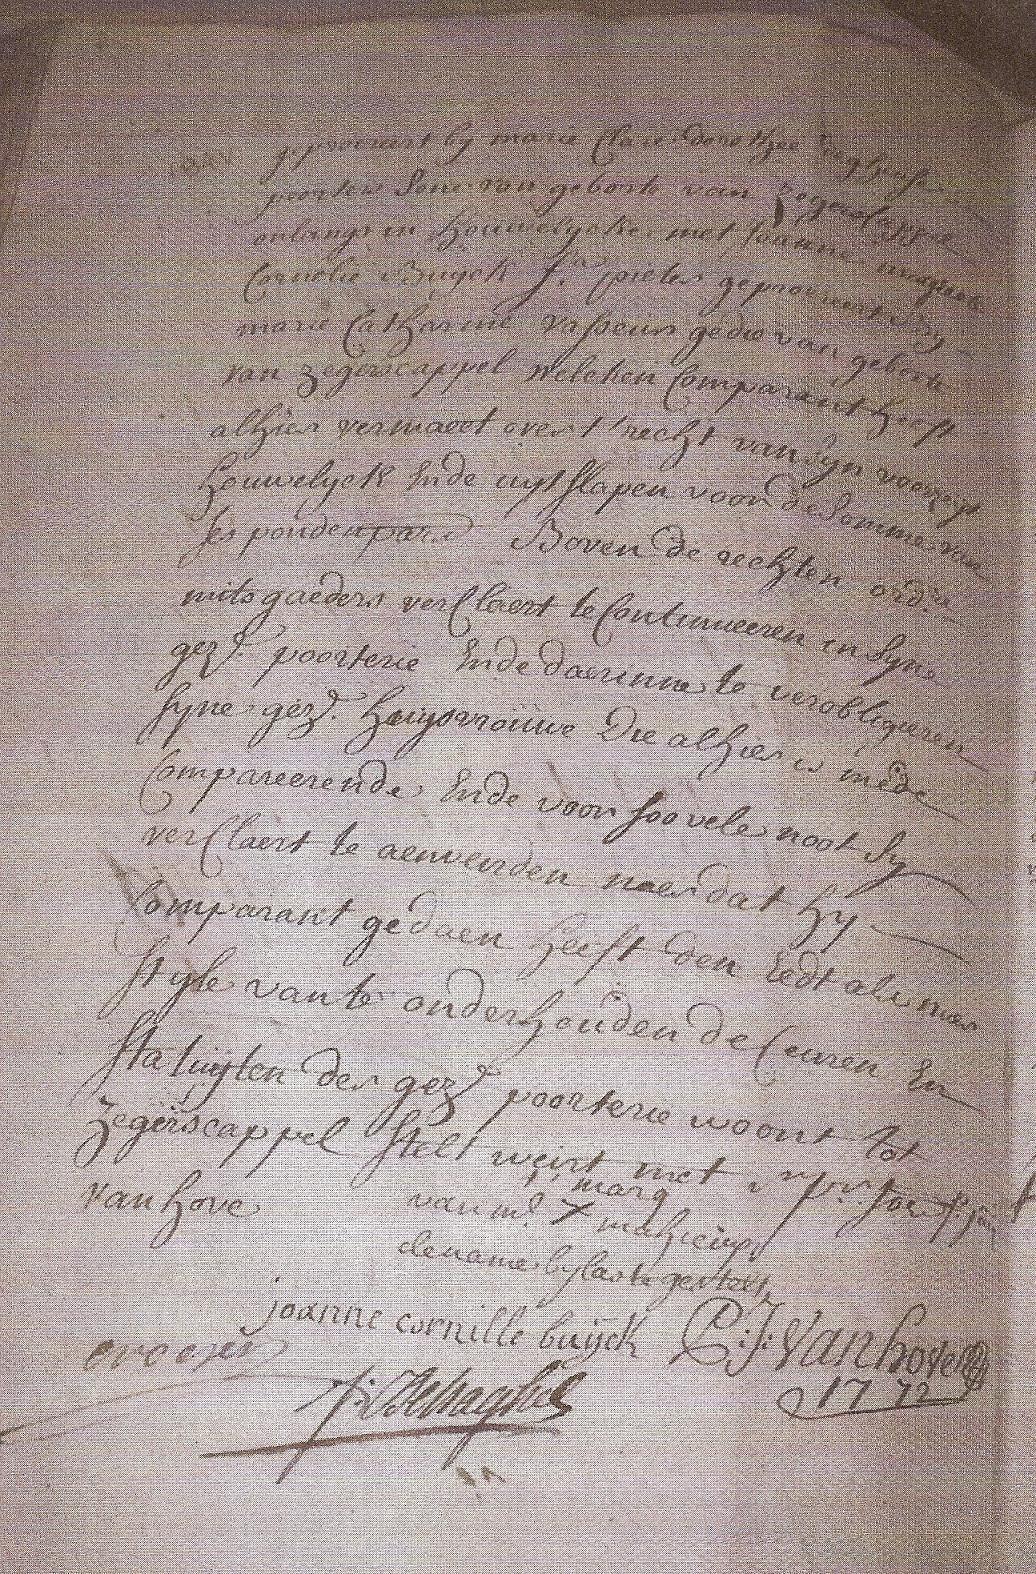 geprocreert by marie Claire dorothee
poorter Sone van geborte van Zegerscappel
onlangs in houwelycke met Joanne
Cornelie Buyck f.a pieter geprocreert by
marie Catharine vasseur gedie van geborte
van Zegerscappel welcken Comparant heeft
alhier vermaect over t'recht van syn voorzeyt
houwelyck Ende uyt slapen voor de Somme van
ses ponden par.s Boven de rechten ord.re
mitsgaeders verClaert te Continueeren in Syne
gez.de poorterie Ende daerinne te verobligeren
syne gez.de huysvrouwe Die alhier is mede
Compareerende Ende voor soo vele noot Sy
verClaert te aenveirden naer dat hy
Comparant gedaen heeft den Eedt alsnaer
style van te onderhouden de Ceuren En
statuyten der gez.de poorterie woont tot
Zegerscappel stelt
van hove
marq
van m.e X
de name by laste gestelt
joanne cornille buijck P: J: Vanhove
1772